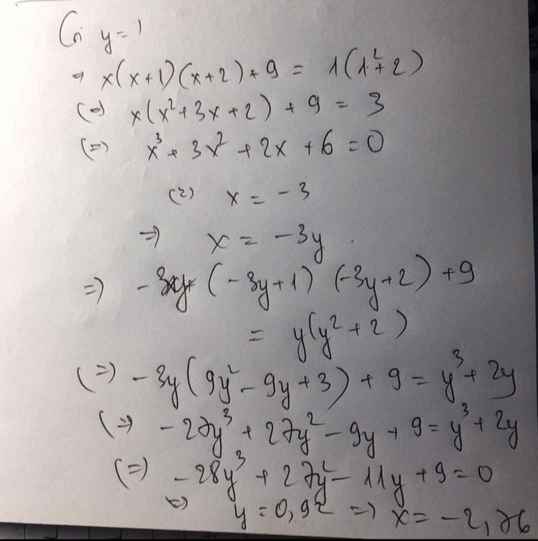 y = 1
⇒ x(x+1)(x+2) + 9 = 1(1²+2)
⇔ x(x²+3x+2) + 9 = 3
⇔ x³ + 3x² + 2x + 6 = 0
(2) x = -3
⇒ x = -3y.
⇒ -3y (-3y+1) (-3y+2) + 9
= y(y²+2)
⇔ -3y(9y² - 9y + 3) + 9 = y³ + 2y
⇔ -27y³ + 27y² - 9y + 9 = y³ + 2y
⇔ -28y³ + 27y² - 11y + 9 = 0
⇒ y = 0,92 ⇒ x = -2,76